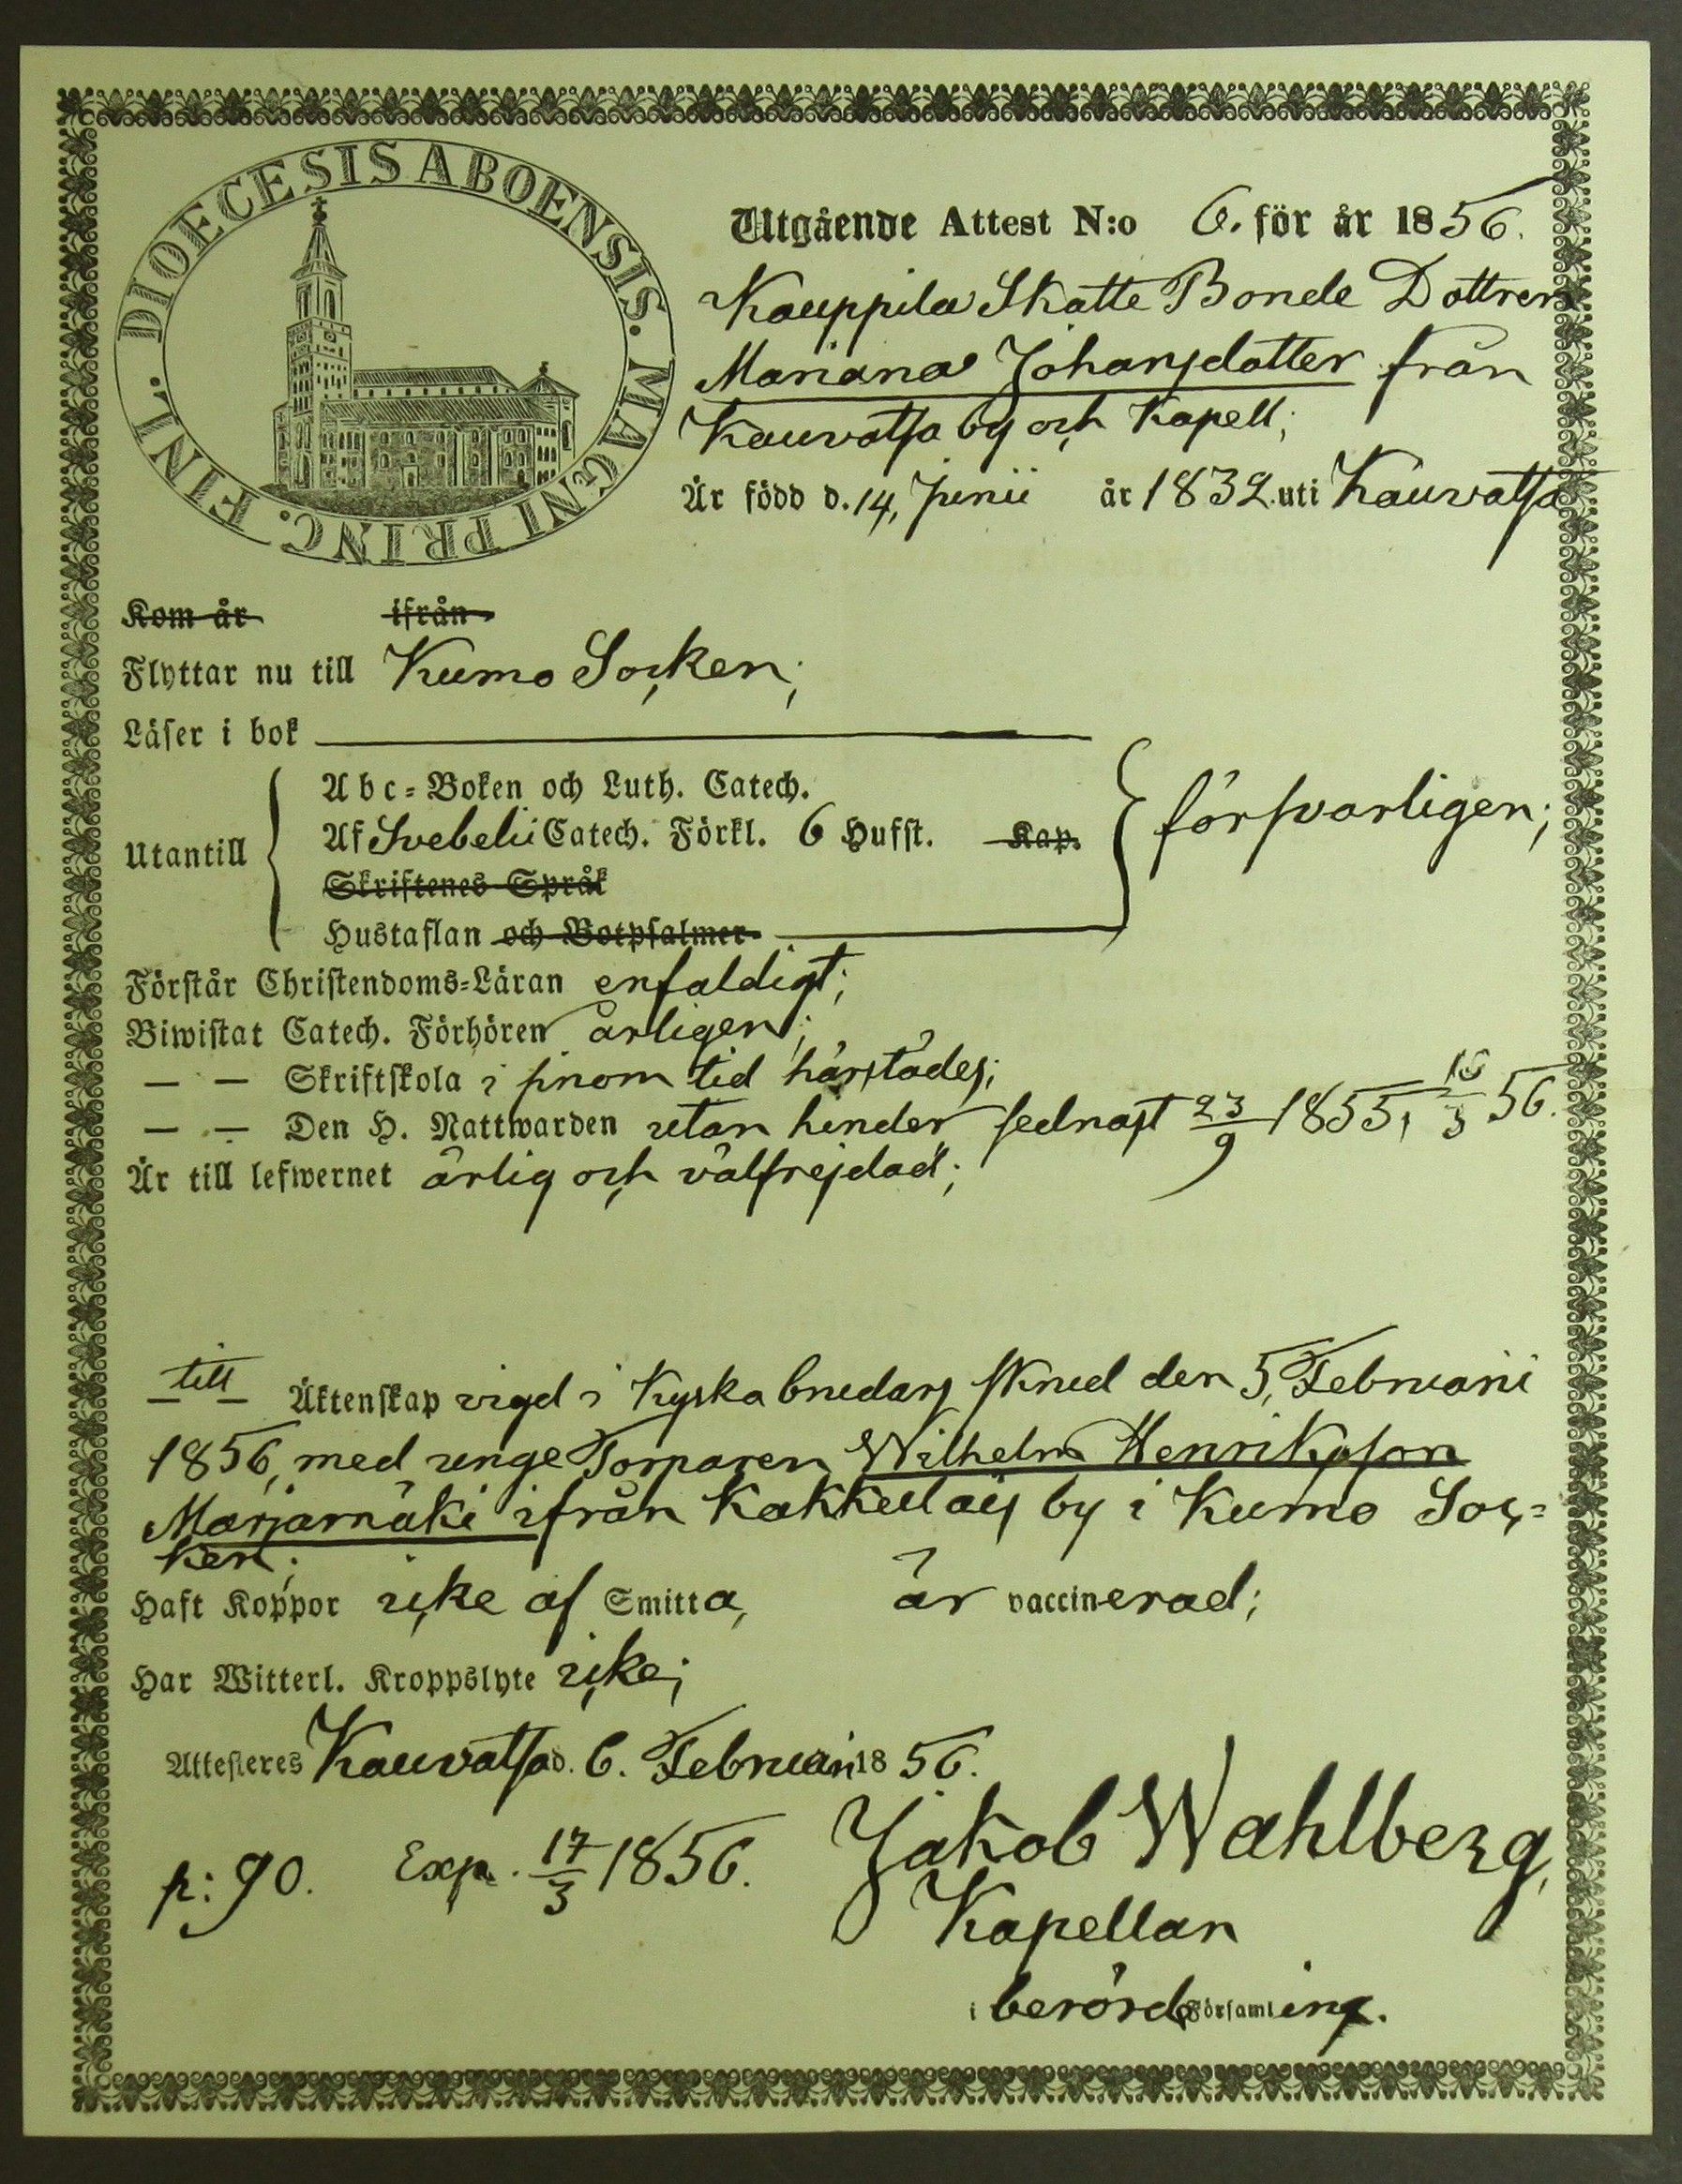 DIOECESIS ABOENSIS. MAGNI PRINC. FINL.
Utgående Attest N:o 6. för år 1856.
Kauppila Skatte Bonde Dottren
Mariana Johansdotter från
Kauvatsa by och Kapell;
Är född d. 14, Junii år 1832 uti Kauvatsa
Kom år ifrån
Flyttar nu till Kumo Socken;
Läser i bok
Abc-Boken och Luth. Catech.
Utantill Af Svebelii Catech. Förkl. 6 Hufst. Kap. försvarligen;
Skriftenes Språk
Hustaflan och Botpsalmer
Förstår Christendoms-Läran enfaldigt;
Biwistat Catech. Förhören årligen;
— — Skriftskola i sinom tid härstädes;
— — Den H. Nattwarden utan hinder sednast 23/9 1855, 16/3 56.
Är till lefwernet ärlig och välfrejdad;
— till — Äktenskap vigd i Kyska brudars skrud den 5, Februarii
1856, med unge Torparen Wilhelm Henriksson
Marjamäki ifrån Kakkulais by i Kumo Soc=
ken;
Haft Koppor icke af Smitta, är vaccinerad;
Har Witterl. Kroppslyte icke;
Attesteres Kauvatsa d. 6. Februarii 1856.
p: 90. Exp. 17/3 1856. Jakob Wahlberg,
Kapellan
i berörde Församling.